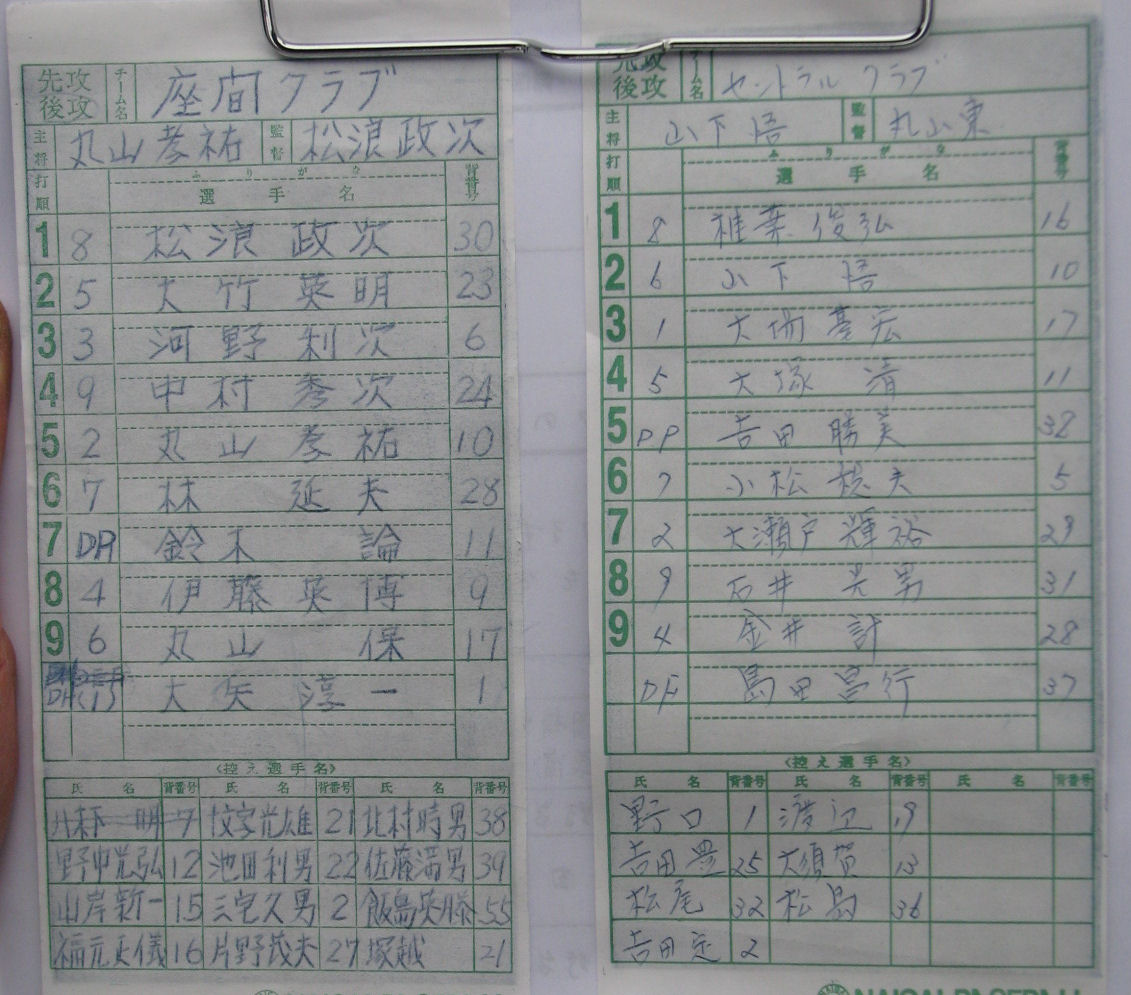 先攻
後攻
チーム名
座間クラブ
主将
丸山孝祐
監督
松浪政次
打順
ふりがな
選手名
背番号
1 8 松浪政次 30
2 5 大竹英明 23
3 3 河野利次 6
4 9 中村秀次 24
5 2 丸山孝祐 10
6 7 林延夫 28
7 鈴木論 11
8 4 伊藤英博 9
9 6 丸山保 17
大矢淳一 1
〈控え選手名〉
氏名 背番号 氏名 背番号 氏名 背番号
7 光雄 21 北村時男 38
野中光弘 12 池田利男 22 佐藤満男 39
山岸新一 15 三宅久男 2 飯島英勝 55
福元正儀 16 片野茂夫 27 塚越 21
先攻
後攻
チーム名
セントラルクラブ
主将
山下悟
監督
丸山東
打順
ふりがな
選手名
背番号
1 8 椎葉俊弘 16
2 6 山下悟 10
3 1 大 17
4 5 大塚清 11
5 DP 吉田勝美 38
6 7 小松 夫 5
7 2 大瀬戸輝裕 29
8 9 石井光男 31
9 4 金井計 28
DF 島田昌行 37
〈控え選手名〉
氏名 背番号 氏名 背番号 氏名 背番号
野口 1 渡辺 19
吉田豊 25 大須賀 13
松尾 32 松島 36
吉田定 2
NAIGAI BASEBALL